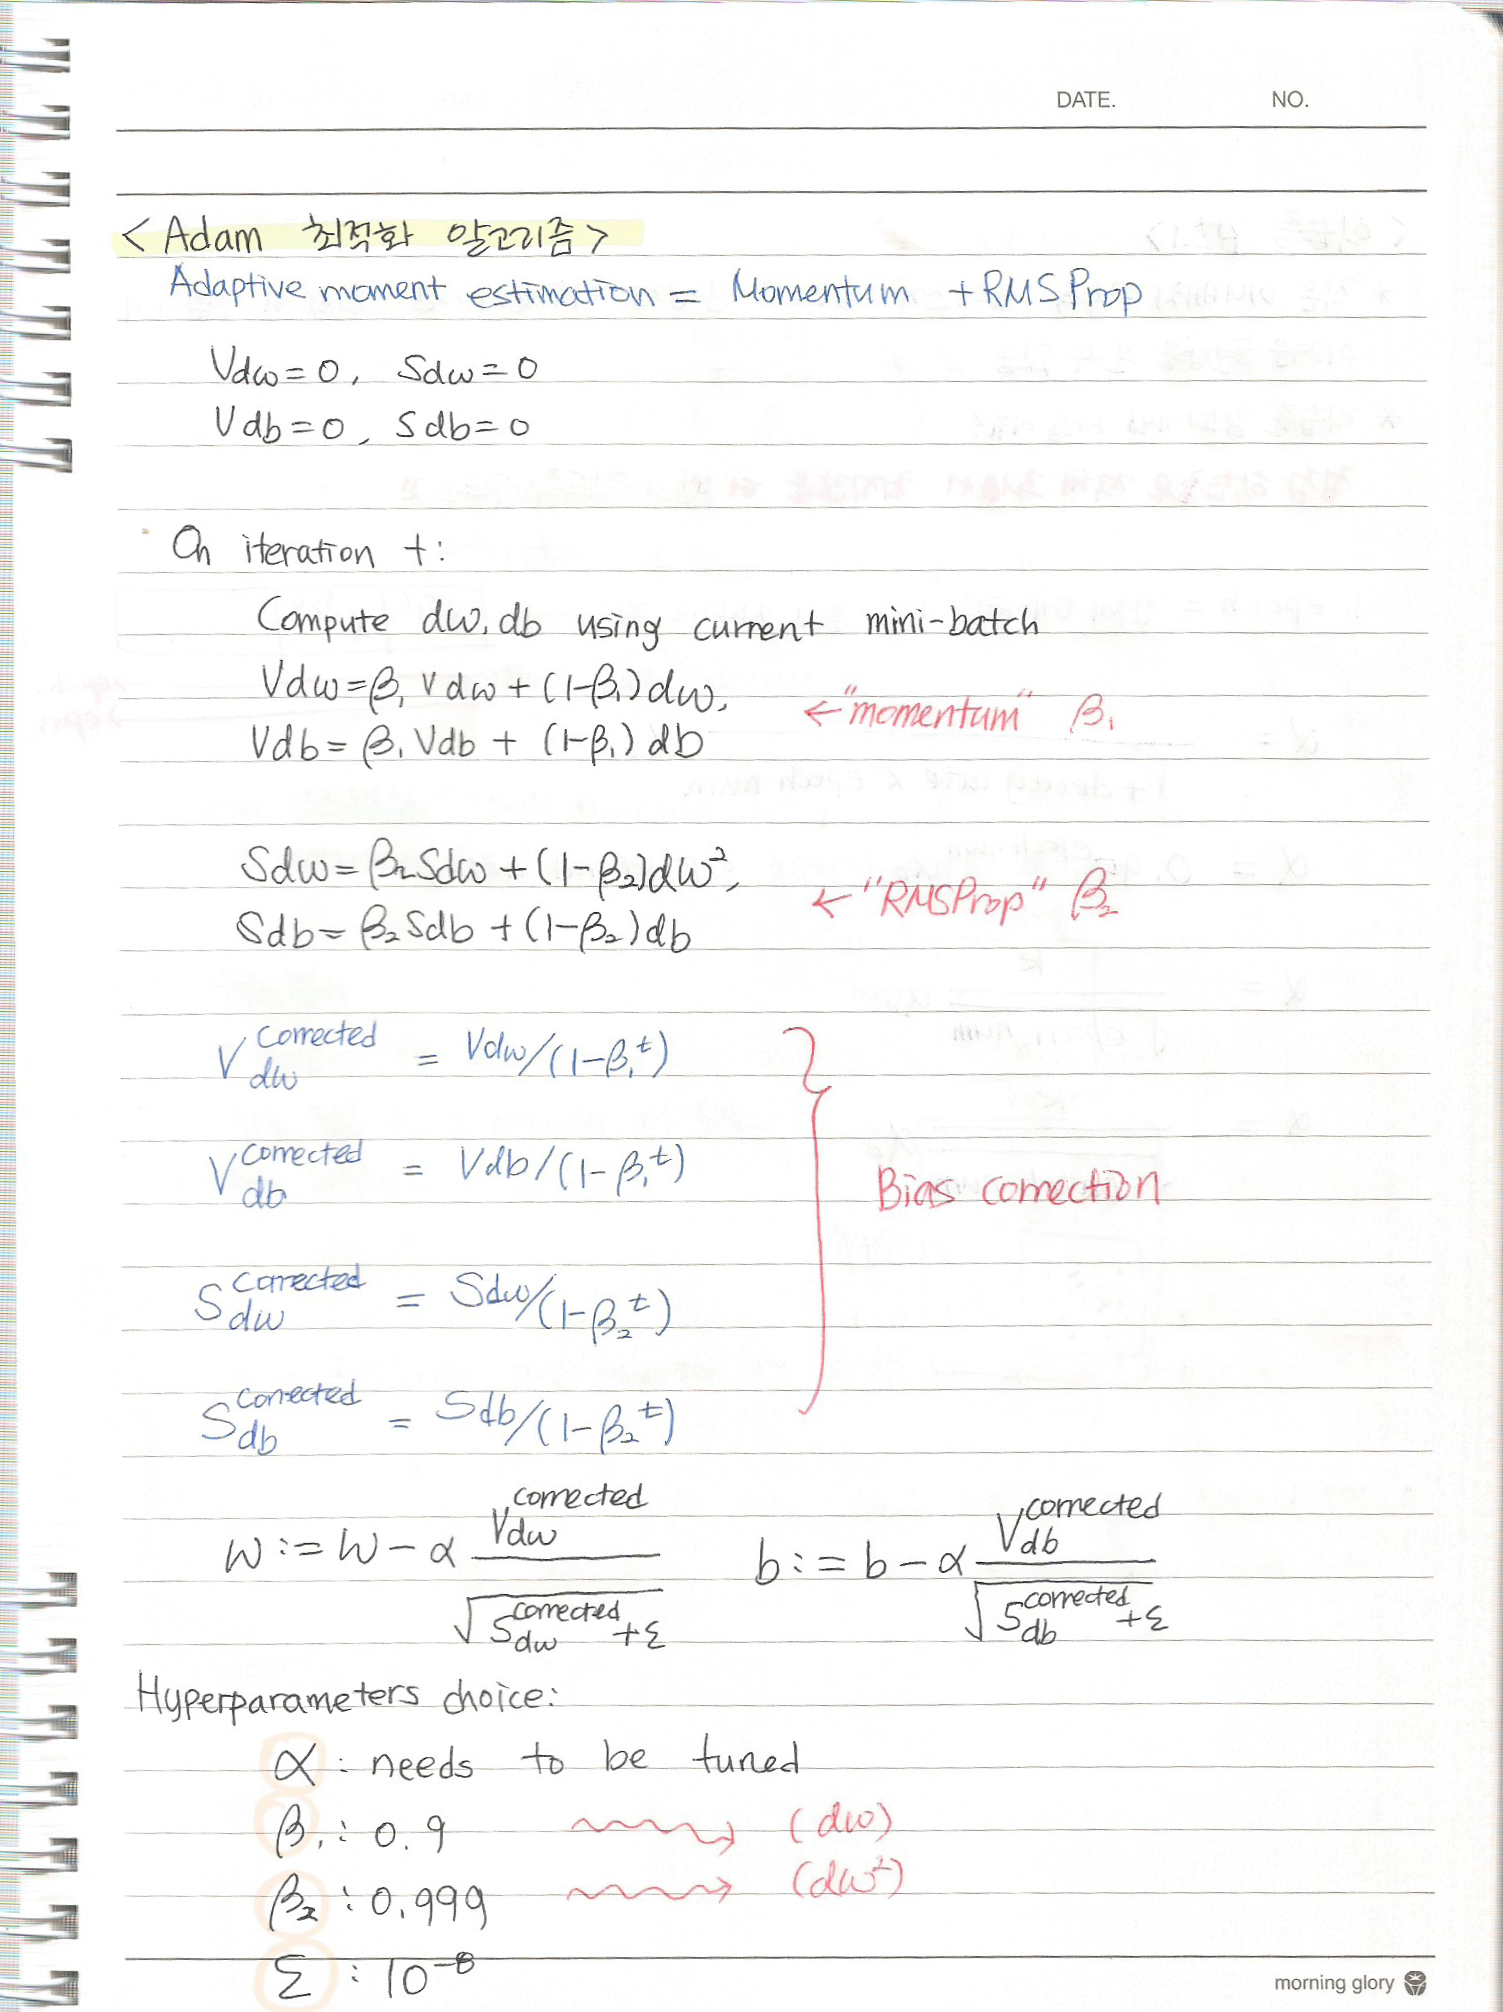 DATE. NO.
< Adam 최적화 알고리즘 >
Adaptive moment estimation = Momentum + RMSProp
Vdw = 0, Sdw = 0
Vdb = 0, Sdb = 0
On iteration t:
Compute dw, db using current mini-batch
Vdw = β₁ Vdw + (1-β₁) dw,
← "momentum" β₁
Vdb = β₁ Vdb + (1-β₁) db
Sdw = β₂ Sdw + (1-β₂) dw²,
← "RMSProp" β₂
Sdb = β₂ Sdb + (1-β₂) db
V_dw^corrected = Vdw/(1-β₁^t)
V_db^corrected = Vdb/(1-β₁^t)
Bias correction
S_dw^corrected = Sdw/(1-β₂^t)
S_db^corrected = Sdb/(1-β₂^t)
w := w - α V_dw^corrected / √(S_dw^corrected + ε) b := b - α V_db^corrected / √(S_db^corrected + ε)
Hyperparameters choice:
α : needs to be tuned
β₁ : 0.9 → (dw)
β₂ : 0.999 → (dw²)
ε : 10⁻⁸
morning glory